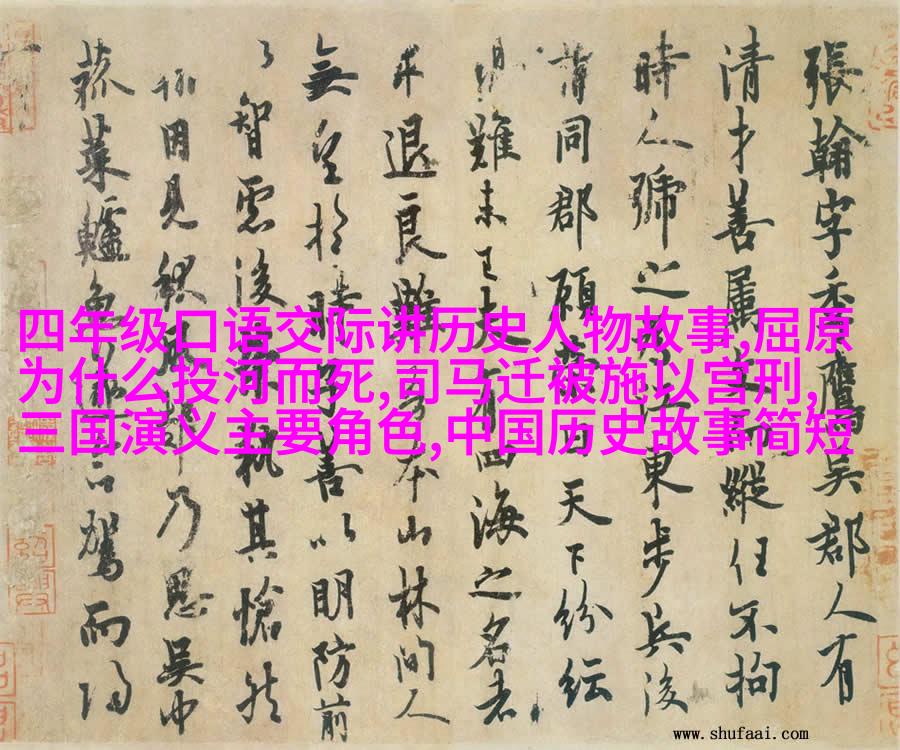 四年级口语交际讲历史人物故事,屈原
为什么投河而死,司马迁被施以宫刑,
三国演义主要角色,中国历史故事简短
張翰字季鷹吳郡人有
清才善屬文而縱任不拘
時人號之江東步兵後
同郡顧天下紛紜
難未已夫有四海之名者
求退良難吾本山林間人
無望於時子善以明防前
智慮後執其愴然
因見秋風乃思吳中
菰菜鱸魚駕而歸
www.shufaai.com